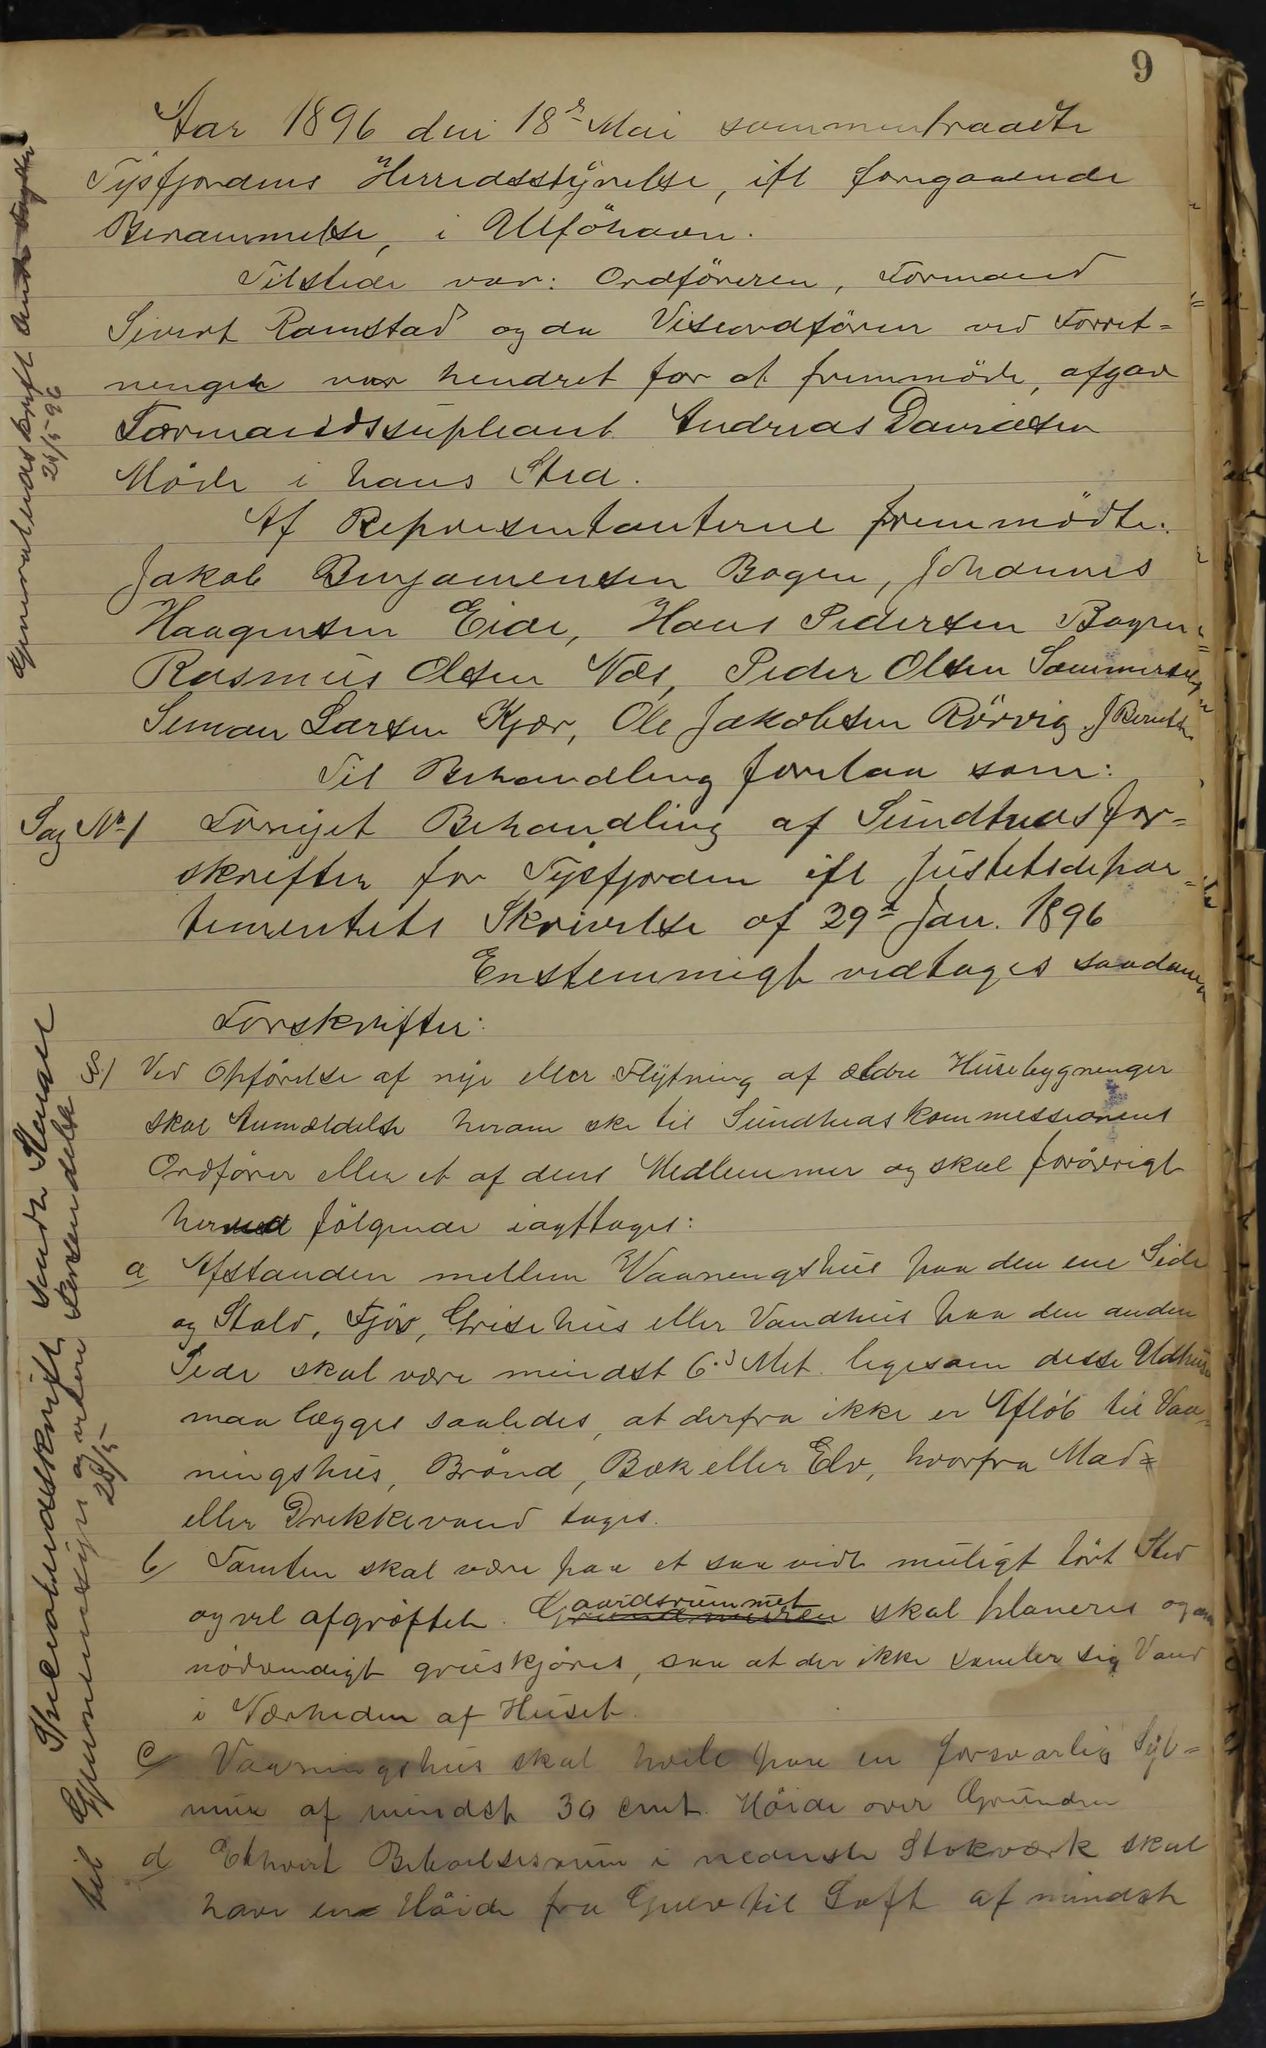 9
Aar 1896 den 18de Mai sammentraadte
Tysfjordens Herredsstyrelse, ifl foregaaende
Berammelse, i Ulføhavn.
Tilstede var: Ordføreren, Formand
Sivert Ramstad og da Viseordfører ved Forret=
ningen var hendret for at fremmøde, afgav
Formandssupleant Andreas Davidsen
Møde i hans Sted.
Af Repræsentanterne fremmødte:
Jakob Benjamensen Bogen, Johannes
Haagensen Eide, Hans Pedersen Bogen
Rasmus Olsen Næs, Peder Olsen Sommersel
Seman Larsen Kjær, Ole Jakobsen Rørvig, J
Til Behandling forelaa som:
Sag No 1 Fornyet Behandling af Sundhedsfor=
skrifter for Tysfjorden ifl Justetsdepar=
tementets Skrivelse af 29de Jan. 1896
Enstemmigt vedtoges saadanne
Forskrifter:
Ved Opførelse af nye eller Flytning af ældre Husebygnenger
skal Anmældelse herom ske til Sundhedskommessionens
Ordfører eller et af dens Medlemmer og skal forøvrigt
hermed følgende iagttages:
a Afstanden mellem Vaanengshus paa den ene Side
og Stald, Fjøs, Grisehus eller Vandhus paa den anden
Side skal være mindst 6.3 Met. ligesom desse Udhuse
maa lægges saaledes, at derfra ikke er Afløb til Vaa=
ningshus, Brønd, Bæk eller Elv, hvorfra Mad=
eller Drekkevand tages.
b Tomten skal være paa et saa vidt muligt tørt Sted
og vel afgrøftet. Gaardsrummet skal planeres og om
nødvendigt gruskjøres, saa at der ikke samler sig Vand
i Nærheden af Huset.
c Vaaningshus skal hvile paa en forsvarlig Syl=
mur af mindst 30 cmt. Høide over Grunden
d Ethvert Beboelsesrum i nederste Stokværk skal
have en Høide fra Gulv til Loft af mindst
Gjenpartudskrift
28/5 96
Specialudskrift sendt
til Gjennemsyn og videre Forsendelse
28/5